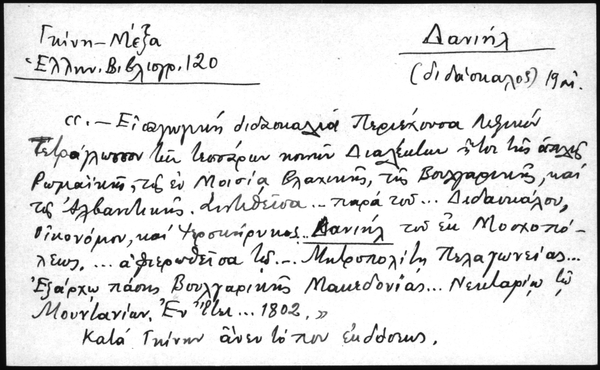 Γκίνη-Μέξα
Δανιήλ
Ἑλλην. Βιβλιογρ. 120
(διδάσκαλος) 19 αἰ.
«.- Εἰσαγωγική διδασκαλία Περιέχουσα Λεξικόν
Τετράγλωσσον τῶν τεσσάρων κοινῶν Διαλέκτων ἤτοι τῆς ἁπλῆς
Ρωμαϊκῆς, τῆς ἐν Μοισία Βλαχικῆς, τῆς Βουλγαρικῆς, καί
τῆς Ἀλβανιτικῆς. Συντεθεῖσα... παρά τοῦ... Διδασκάλου,
Οἰκονόμου, καί Ἱεροκήρυκος.. Δανιήλ τοῦ ἐκ Μοσχοπό-
λεως. ... ἀφιερωθεῖσα τῷ... Μητροπολίτῃ Πελαγωνείας...
Ἐξάρχῳ πάσης Βουλγαρικῆς Μακεδονίας... Νεκταρίῳ τῷ
Μουντανίων. Ἐν Ἔτει... 1802.»
Κατά Γκίνην ἄνευ τόπου ἐκδόσεως.